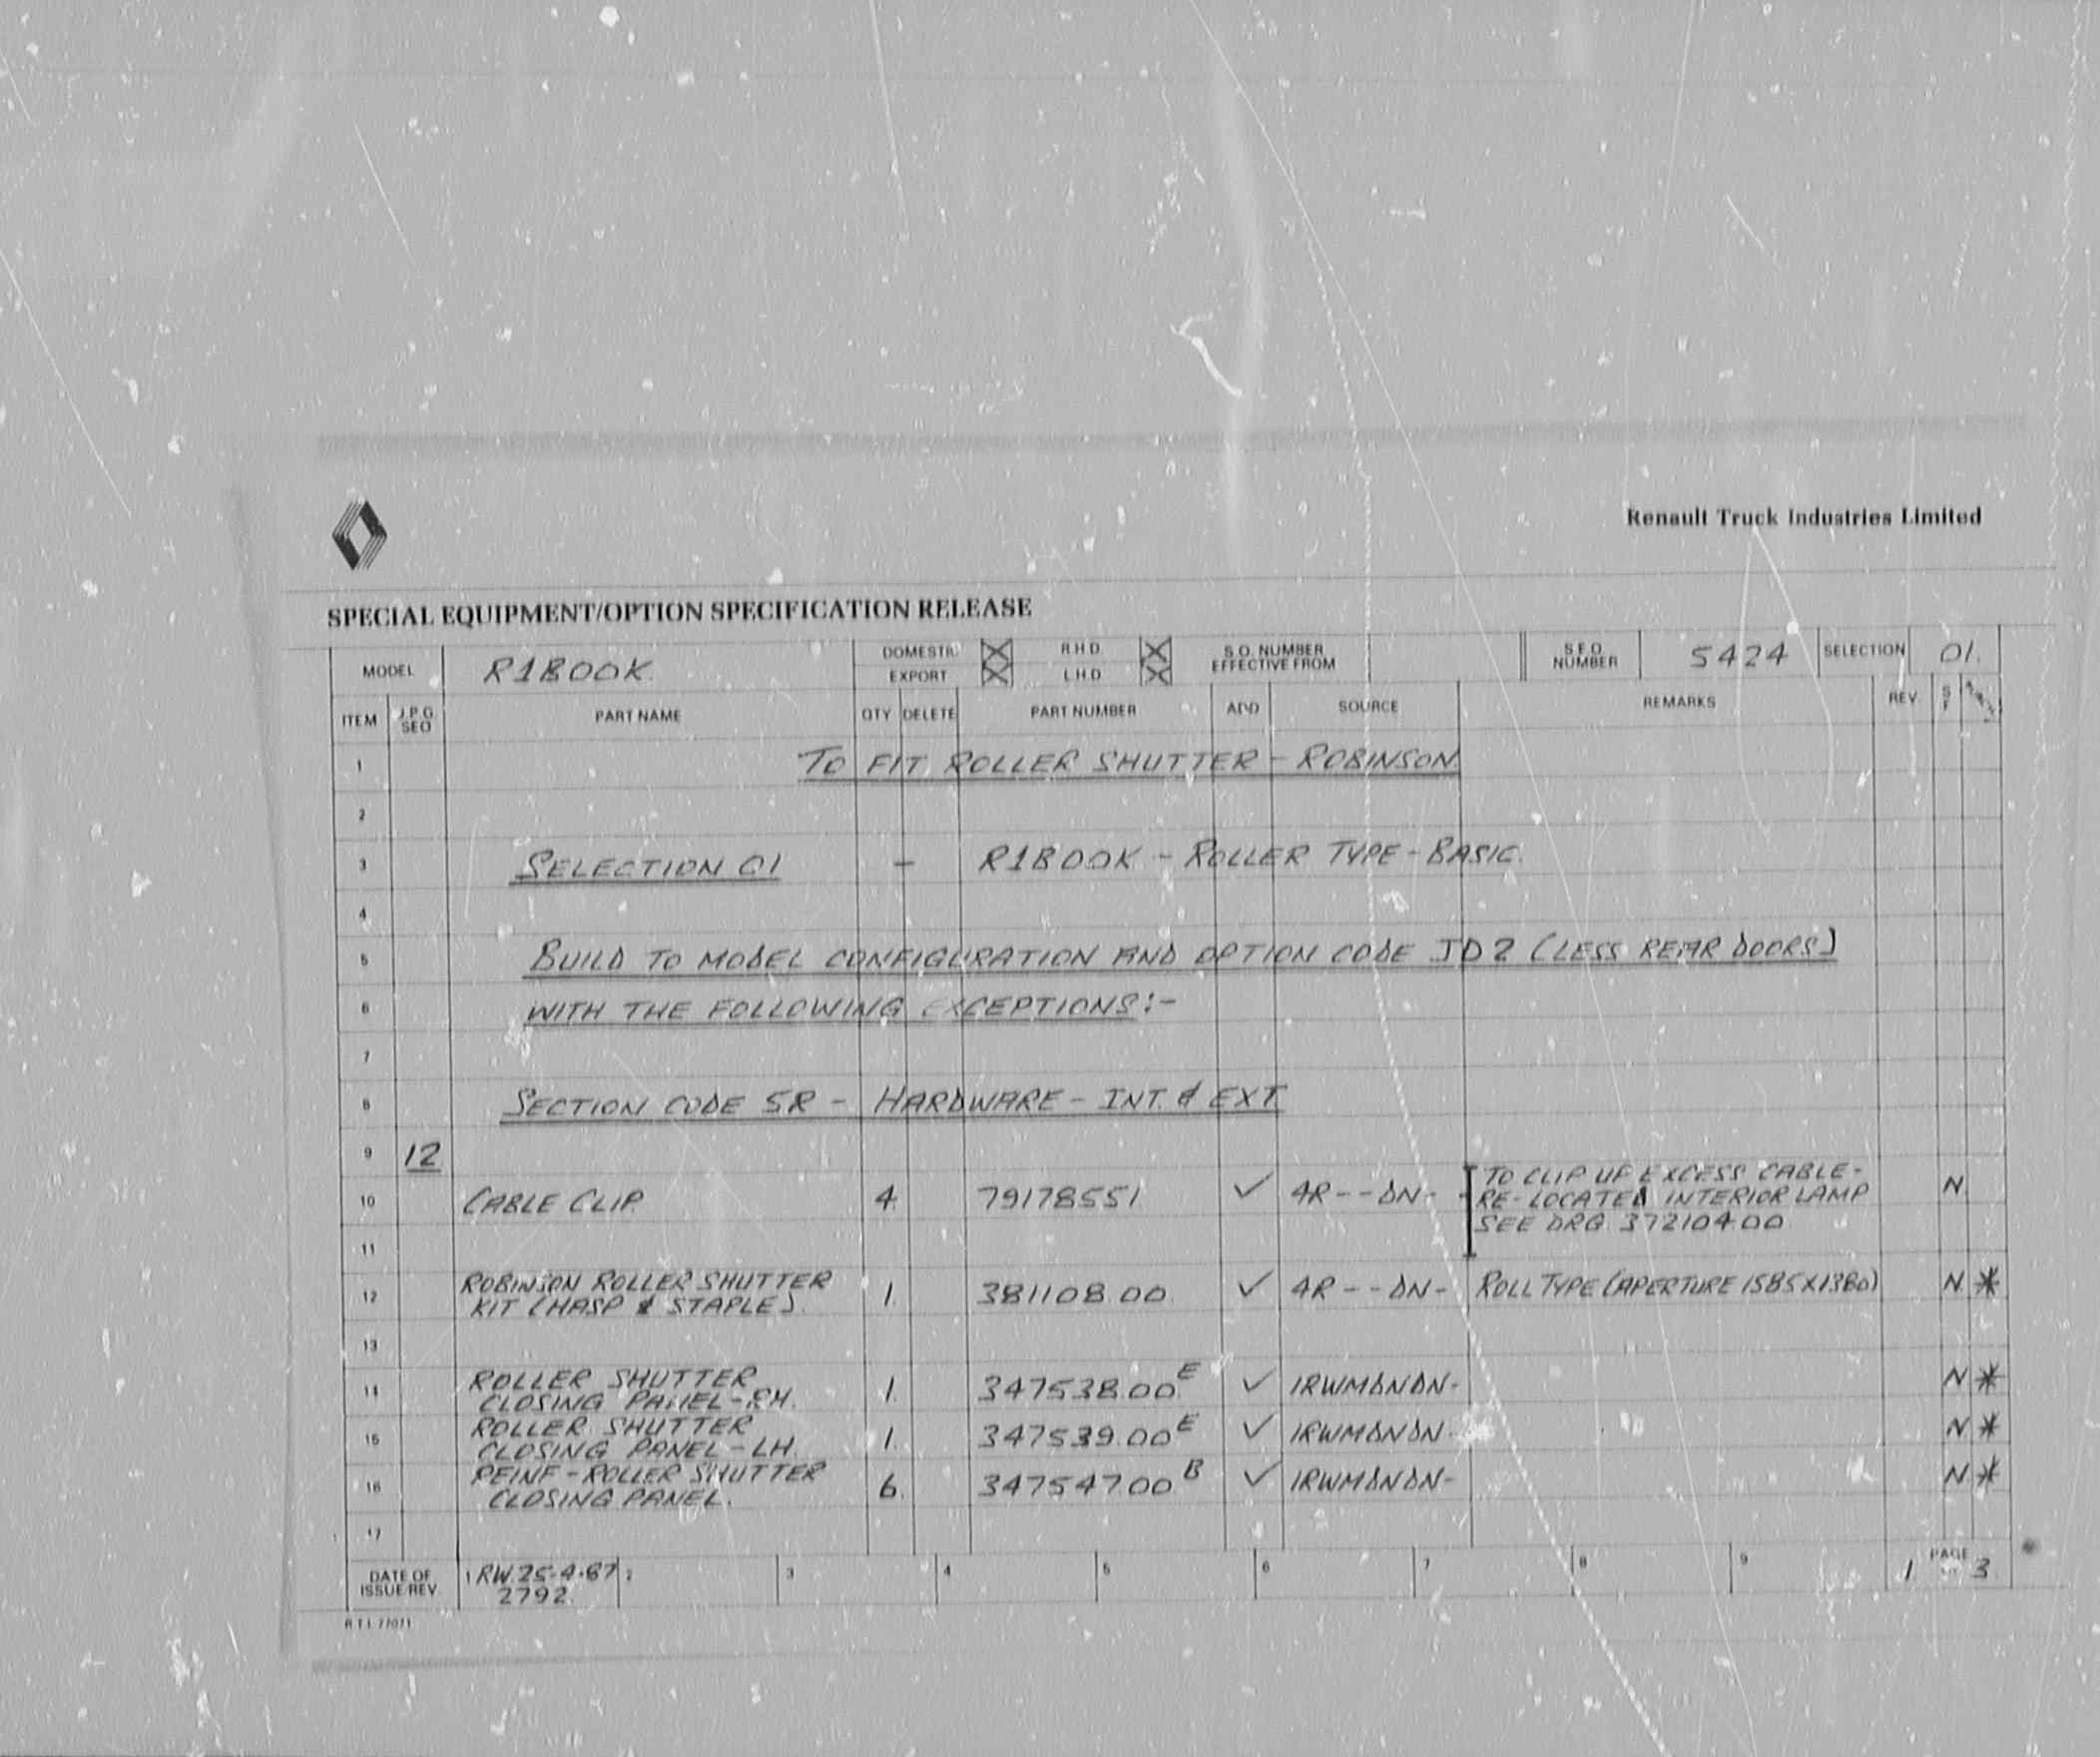 Renault Truck Industries Limited
SPECIAL EQUIPMENT/OPTION SPECIFICATION RELEASE
MODEL R1BOOK DOMESTIC R.H.D. S.O. NUMBER EFFECTIVE FROM S.E.O. NUMBER 5424 SELECTION 01.
EXPORT L.H.D.
ITEM J.P.G. SEQ PART NAME QTY DELETE PART NUMBER ADD SOURCE REMARKS REV.
1 TO FIT ROLLER SHUTTER - ROBINSON.
2
3 SELECTION 01 - R1BOOK - ROLLER TYPE - BASIC.
4
5 BUILD TO MODEL CONFIGURATION AND OPTION CODE JD2 (LESS REAR DOORS)
6 WITH THE FOLLOWING EXCEPTIONS:-
7
8 SECTION CODE 5R - HARDWARE - INT. & EXT
9 12
TO CLIP UP EXCESS CABLE -
10 CABLE CLIP. 4. 79178551 ✓ 4R--DN- RE-LOCATED INTERIOR LAMP N
SEE DRG. 372104.00
11
ROBINSON ROLLER SHUTTER
12 KIT (HASP & STAPLE). 1. 381108.00 ✓ 4R--DN- ROLL TYPE (APERTURE 1585X1380) N *
13
ROLLER SHUTTER
14 CLOSING PANEL-RH. 1. 347538.00 E ✓ 1RWMDNDN- N *
ROLLER SHUTTER
15 CLOSING PANEL-LH. 1. 347539.00 E ✓ 1RWMDNDN- N *
REINF-ROLLER SHUTTER
16 CLOSING PANEL. 6. 347547.00 B ✓ 1RWMDNDN- N *
17
DATE OF ISSUE/REV. 1 RW. 25-4-87 2 3 4 5 6 7 8 9 1 PAGE 3
2792.
R.T.I. 77071